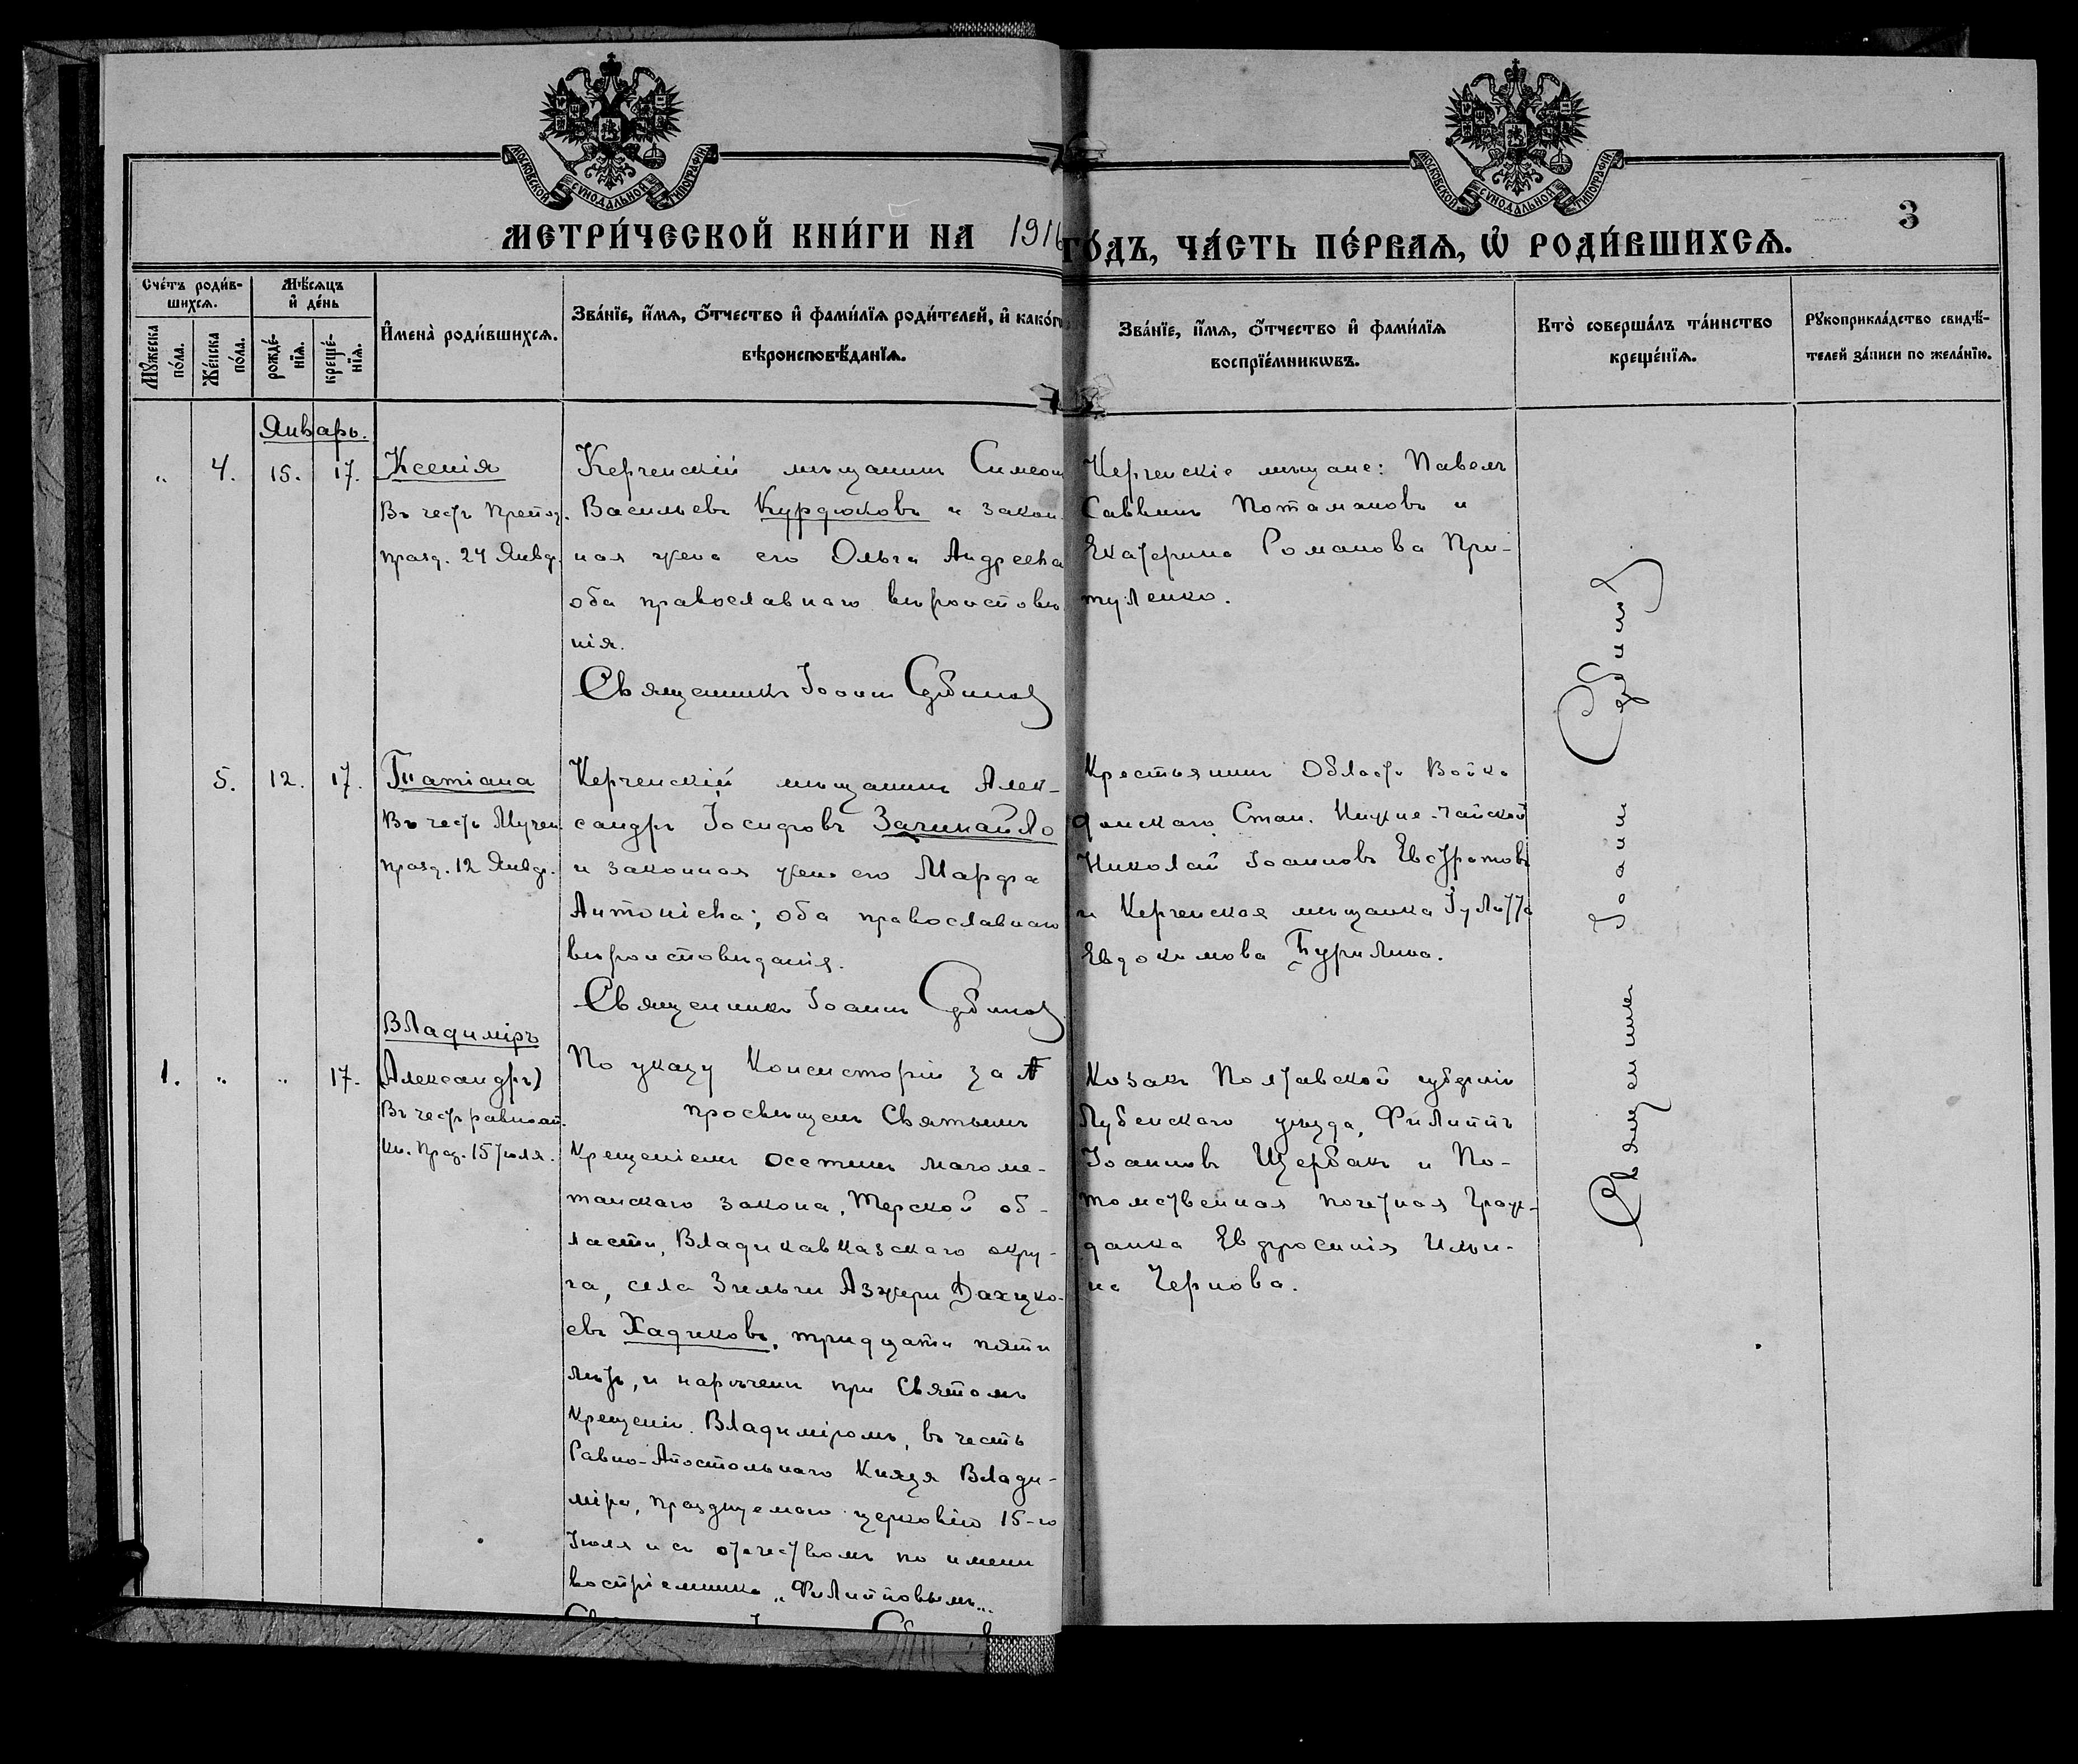 МОСКОВСКОЙ СУНОДАЛЬНОЙ ТИПОГРАФІИ.
МОСКОВСКОЙ СУНОДАЛЬНОЙ ТИПОГРАФІИ.
3
МЕТРИ́ЧЕСКОЙ КНИ́ГИ НА 1916 ГО́ДЪ, ЧА́СТЬ ПЕ́РВАѦ, Ѡ҆ РОДИ́ВШИХСѦ.
Сче́тъ роди́в-
шихсѧ.
Мѣ́сѧцъ
и҆ де́нь
Мꙋ́жеска
по́ла.
Же́нска
по́ла.
рожде́-
нїѧ.
креще́-
нїѧ.
И҆мена̀ роди́вшихсѧ.
Зва́нїе, и҆́мѧ, ѻ҆́тчество и҆ фами́лїѧ роди́телей, и҆ како́гѡ
вѣроисповѣ́данїѧ.
Зва́нїе, и҆́мѧ, ѻ҆́тчество и҆ фами́лїѧ
воспрїе́мникѡвъ.
Кто̀ соверша́лъ та́инство
креще́нїѧ.
Рꙋкоприкла́дство свидѣ́-
телей за́писи по жела́нїю.
Январь.
„ 4. 15. 17.
Ксенія
Въ честь Препод.
празд. 24 Январ.
Керченскій мѣщанинъ Симеон
Васильевъ Курдюковъ и закон-
ная жена его Ольга Андреева
оба православнаго вѣроисповѣ
нія.
Священникъ Іоаннъ
Керченскіе мѣщане: Павелъ
Саввинъ Потамановъ и
Екатерина Романова При-
туленко.
5. 12. 17.
Татіана
Въ честь Мучен.
празд. 12 Январ.
Керченскій мѣщанинъ Алек-
сандръ Іосифовъ Зачинайло
и законная жена его Марфа
Антоніева; оба православнаго
вѣроисповѣданія.
Священникъ Іоаннъ
Крестьянинъ Области Войска
Донскаго, Стан.
Николай Іоанновъ Евстратовъ
и Керченская мѣщанка Іулитта
Евдокимова Бурилина.
1. „ „ 17.
Владиміръ
(Александръ)
Въ честь равноап.
Кн. Праз. 15 Іюля.
По указу Консисторіи за №
просвѣщенъ Святымъ
Крещеніемъ осетинъ магоме-
танскаго закона, Терской об-
ласти, Владикавказскаго окру-
га, села Зильги Азжери Дахцко-
евъ Хадиковъ, тридцати пяти
лѣтъ, и нареченъ при Святомъ
Крещеніи Владиміромъ, въ честь
Равно-Апостольнаго Князя Влади-
міра, празднуемаго церковію 15-го
Іюля и съ отчествомъ по имени
воспріемника „Филипповымъ„.
Козакъ Полтавской губерніи
Лубенскаго уѣзда, Филиппъ
Іоанновъ Щербакъ и По-
томственная почетная Граж-
данка Евфросинія Ильи-
на Чернова.
Священникъ Іоаннъ